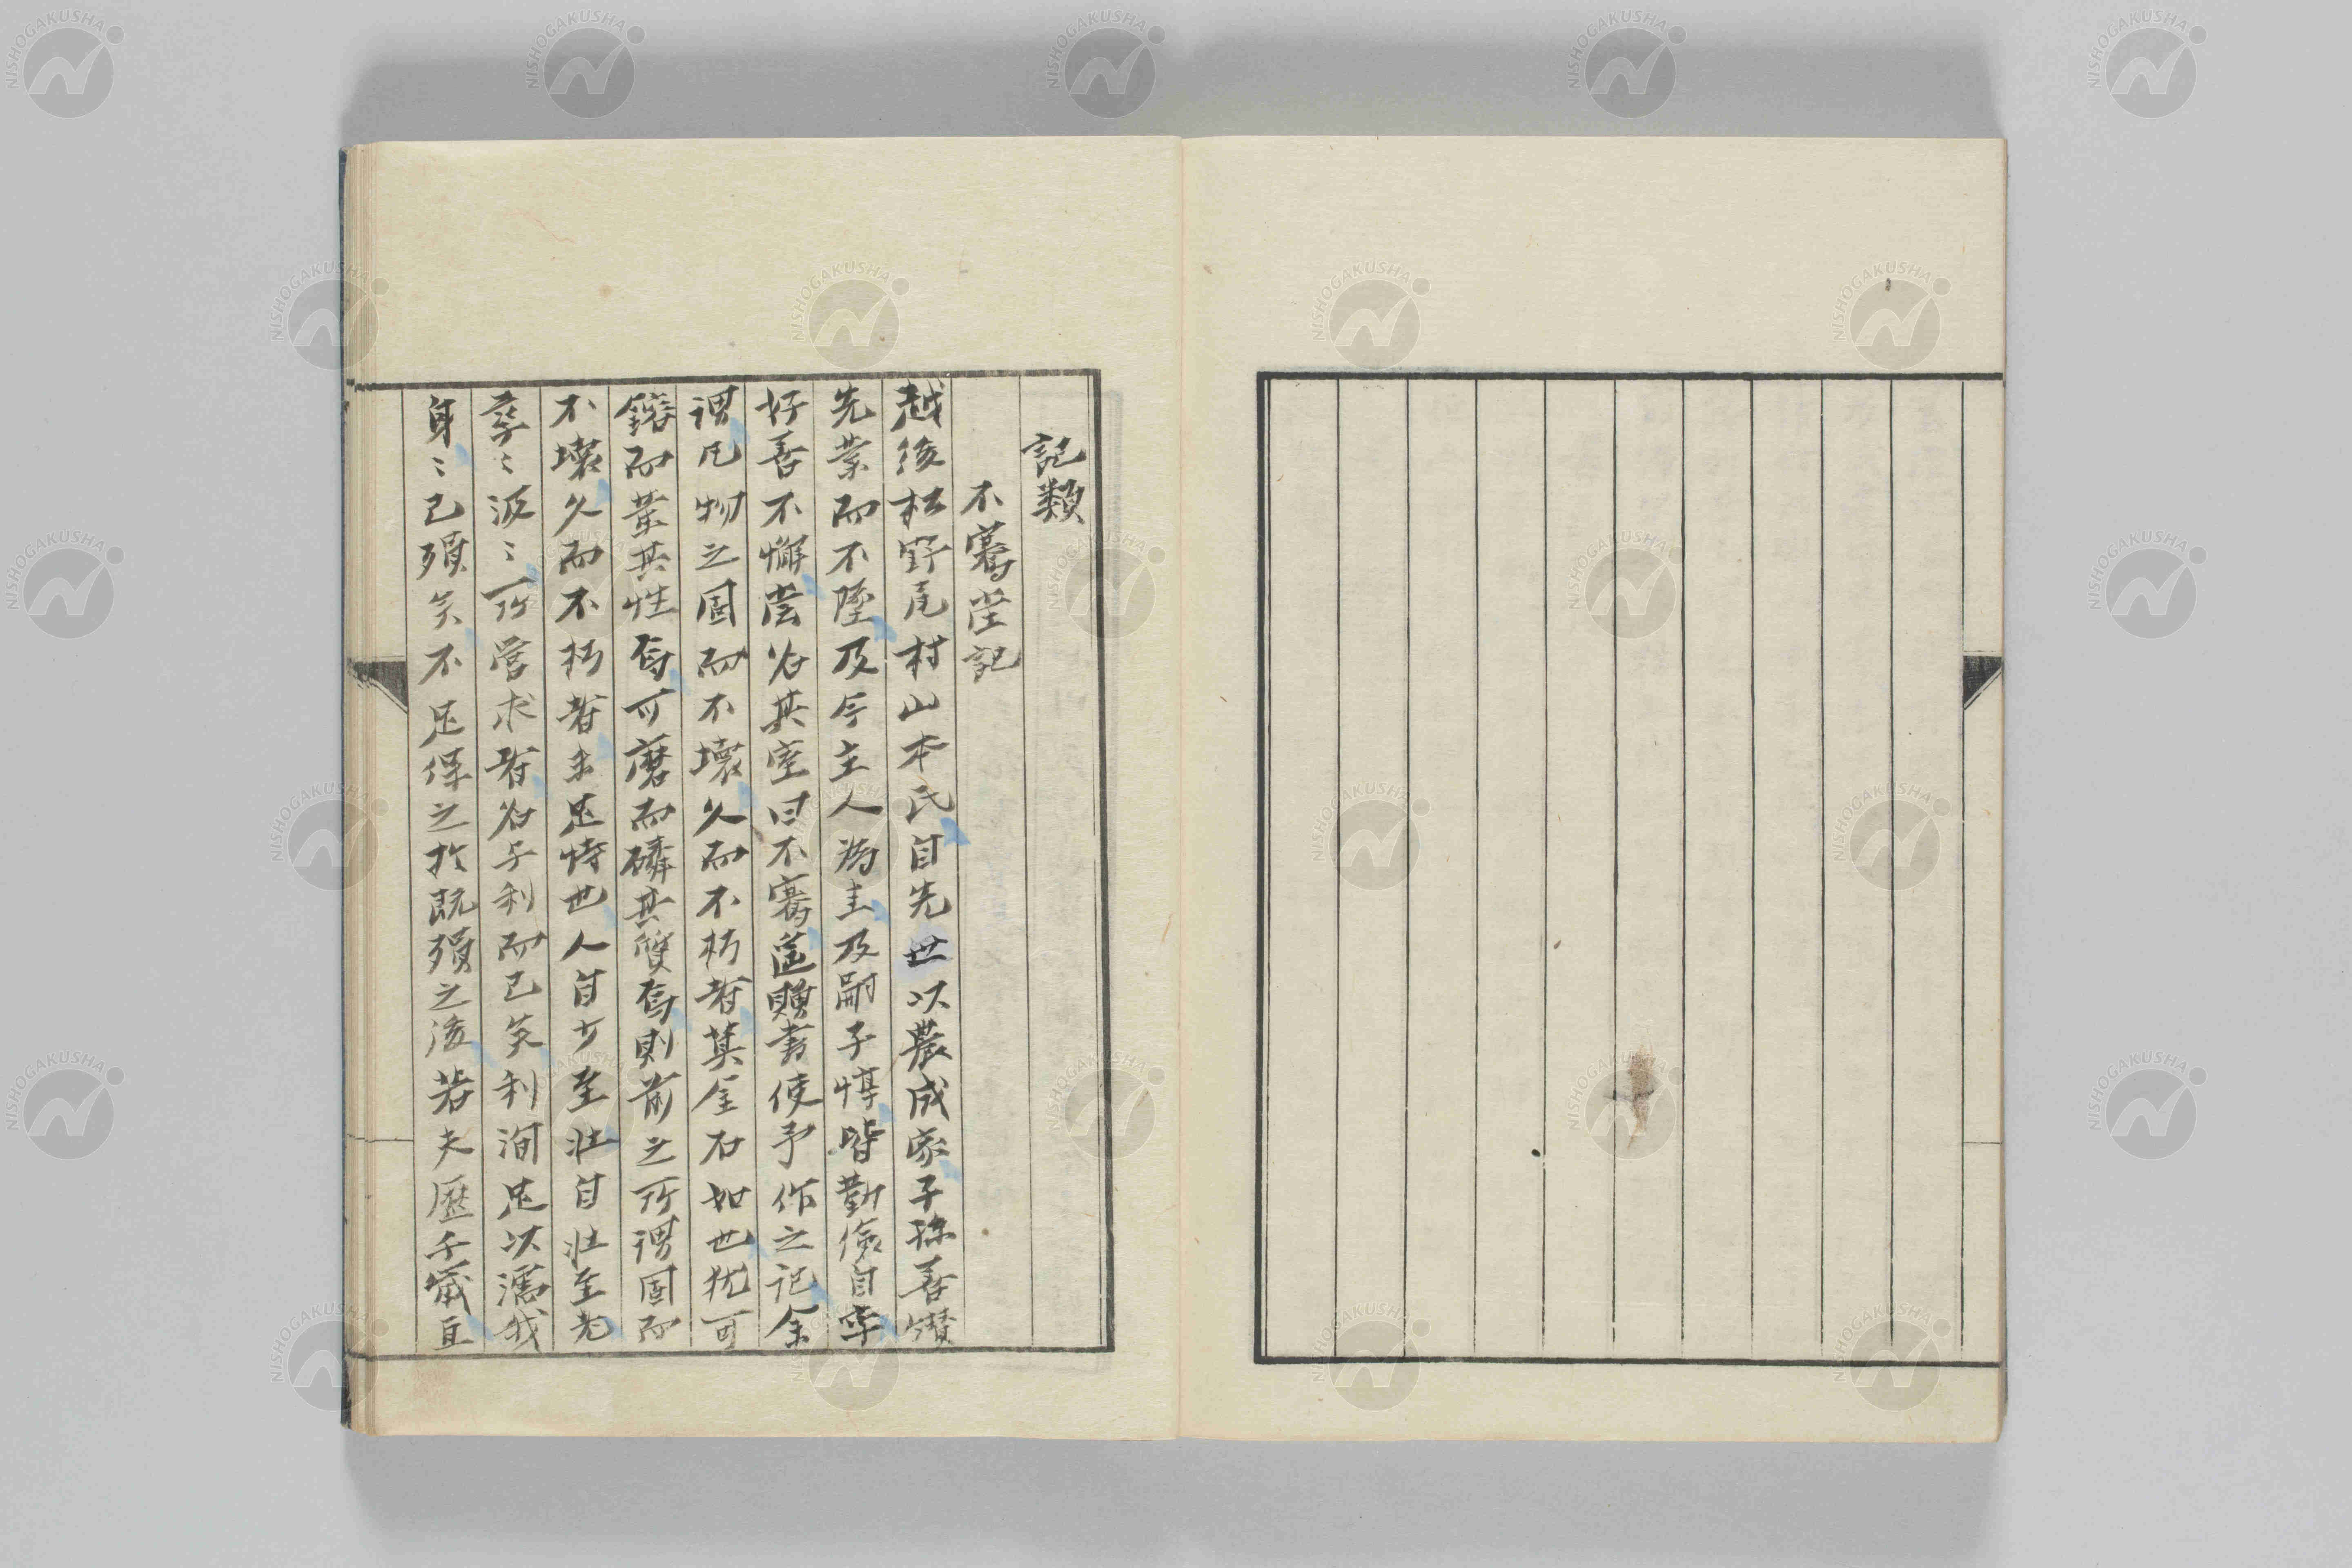 記類
不騫堂記
越後松野尾村山本氏自先世以農成家子孫善纉
先業而不墜及今主人為圭及嗣子惇皆勤儉自率
好善不懈嘗名其室曰不騫盖贈書使予作之記余
謂凡物之固而不壞久而不朽者莫金石如也犹可
鎔而棄其性有可磨而磷其質有則前之所謂固而
不壞久而不朽者未足恃也人自少至壮自壮至老
孳〻汲〻所營求者名与利而已矣利洵足以濡我
身〻已殞矣不足保之於既殞之後若夫歴千歳亘
NISHOGAKUSHA